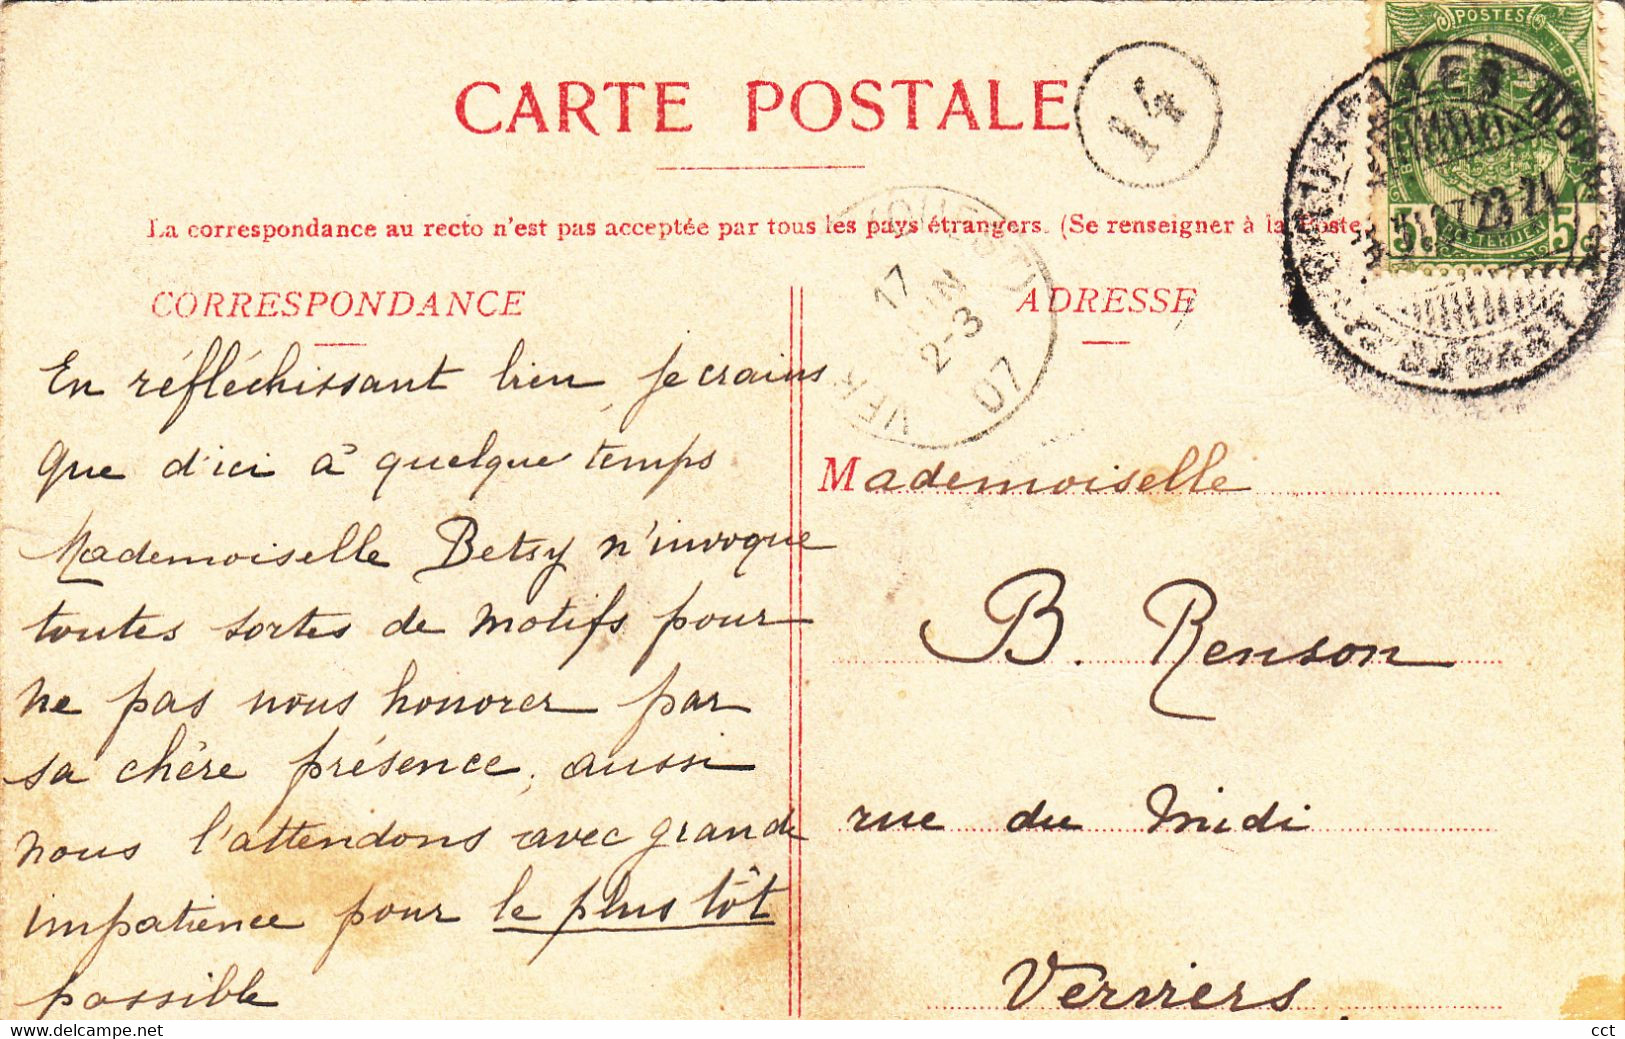 CARTE POSTALE
14
La correspondance au recto n'est pas acceptée par tous les pays étrangers. (Se renseigner à la Poste
CORRESPONDANCE
En réfléchissant bien, je crains
que d'ici à quelque temps
Mademoiselle Betsy n'invoque
toutes sortes de motifs pour
ne pas nous honorer par
sa chère présence, aussi
nous l'attendons avec grande
impatience pour le plus tôt
possible
ADRESSE
Mademoiselle
B. Renson
rue du Midi
Verviers
POSTES
5 5
23-24
DEPART
17
2-3
07
delcampe.net
cct